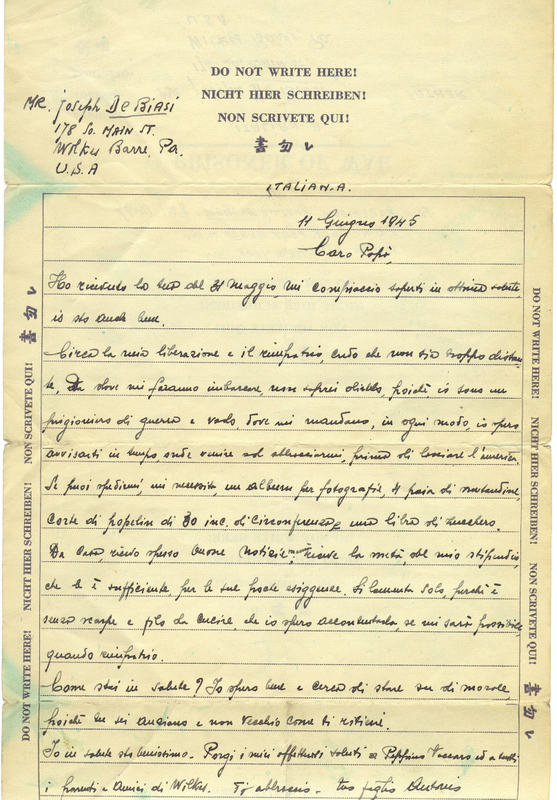 DO NOT WRITE HERE!
NICHT HIER SCHREIBEN!
NON SCRIVETE QUI!
書勿レ
MR. Joseph De Biasi
178 So. MAIN ST.
Wilkes Barre, Pa.
U.S.A
ITALIAN-A.
11 Giugno 1945
Caro Papà,
Ho ricevuto la tua del 31 Maggio, mi compiaccio saperti in ottima salute
io sto anche bene.
Circa la mia liberazione e il rimpatrio, credo che non sia troppo distan-
te, Da dove mi faranno imbarcare, non saprei dirtelo, poiché io sono un
prigioniero di guerra e vado, dove mi mandano, in ogni modo, io spero
avvisarti in tempo onde venire ad abbracciarmi, prima di lasciare l'america.
Se puoi spedirmi, mi necessita, un album per fotografie, 4 paia di mutandine,
corte di popelin di 30 inc. di circonferenza e una libra di zucchero.
Da casa, ricevo spesso buone notizie, riceve la metà, del mio stipendio,
che le è sufficiente per le sue poche esiggenze. Si lamenta solo, perché è
senza scarpe e filo da cucire, che io spero accontentarla, se mi sarà possibile,
quando rimpatrio.
Come stai in salute? Io spero bene e cerca di stare su di morale
poiché tu sei anziano e non vecchio come ti ritieni.
Io in salute sto benissimo. Porgi i miei affettuosi saluti a Peppino Vaccaro ed a tutti
i parenti e amici di Wilkes. Ti abbraccio. tuo figlio Antonio
NON SCRIVETE QUI! 書勿レ
NICHT HIER SCHREIBEN!
DO NOT WRITE HERE!
DO NOT WRITE HERE!
NICHT HIER SCHREIBEN!
NON SCRIVETE QUI! 書勿レ